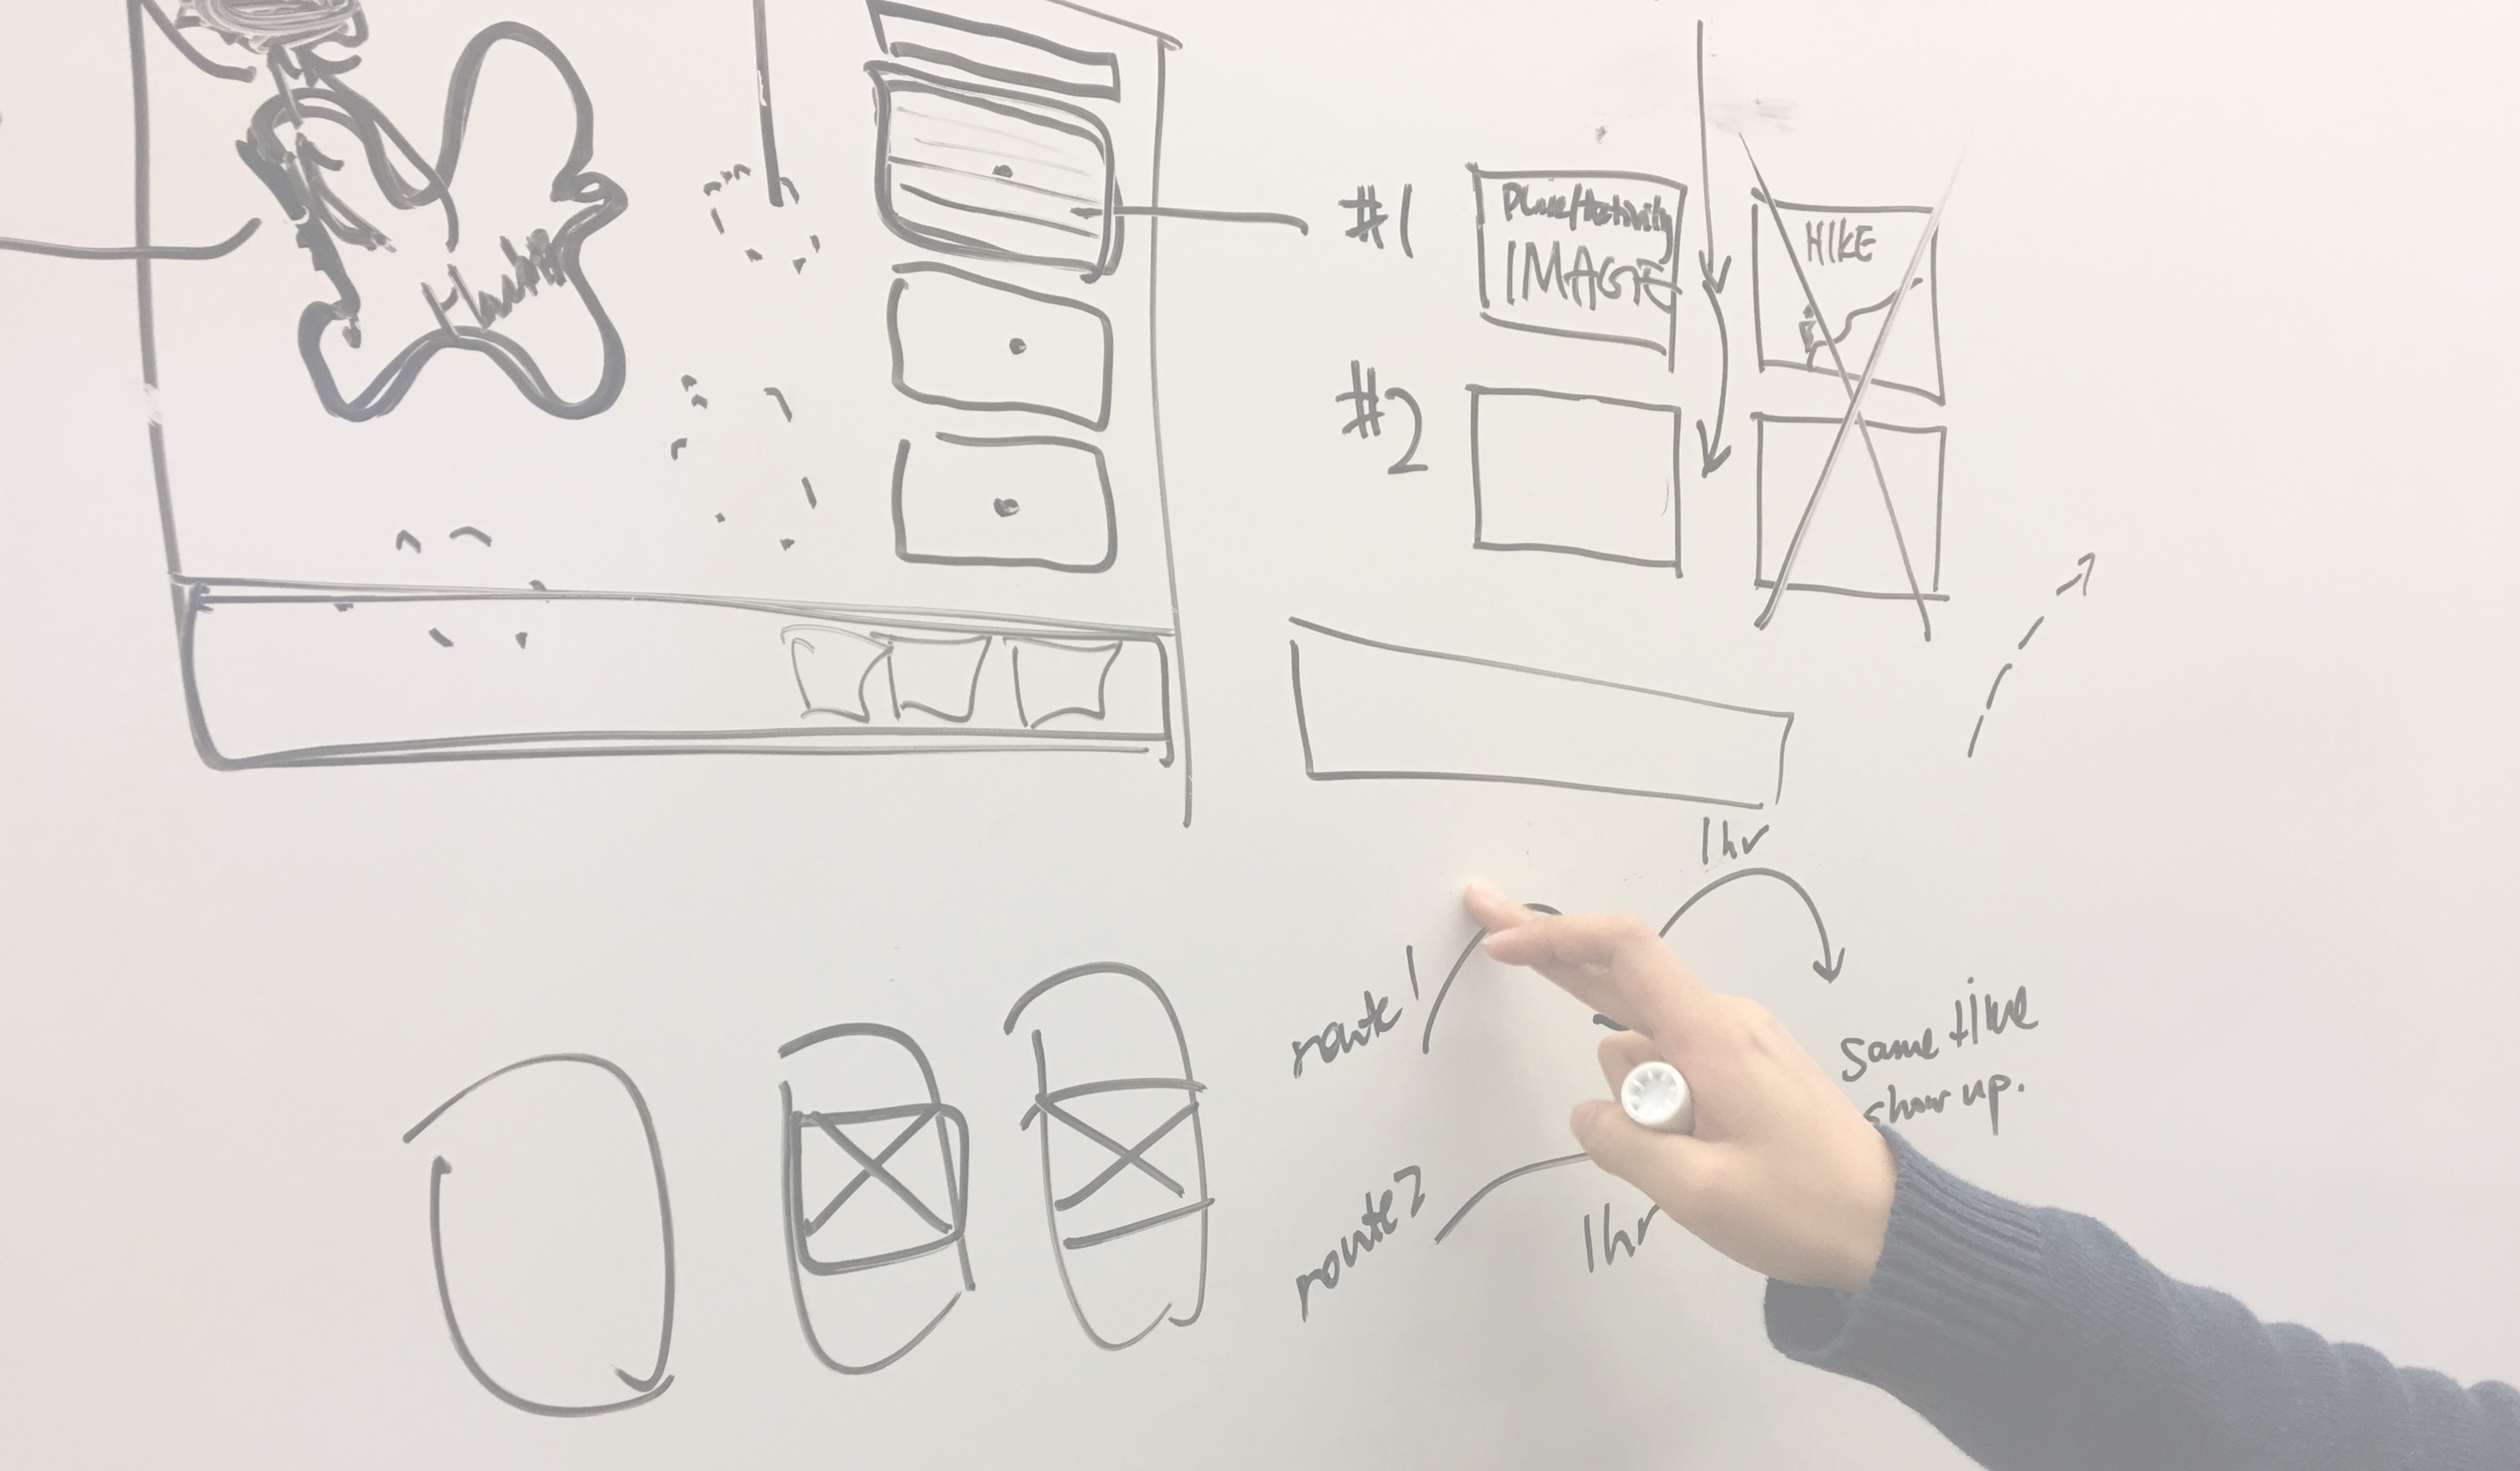 #1
Place/Activity
IMAGE
HIKE
#2
1hr
route 1
Same time
show up.
route 2
1hr